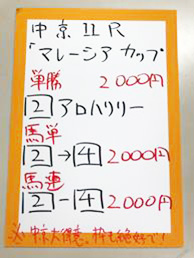 中京11R
「マレーシアカップ」
単勝 2000円
2 アロハリリー
馬単
2→4 2000円
馬連
2-4 2000円
※中京大得意。枠も絶好で!